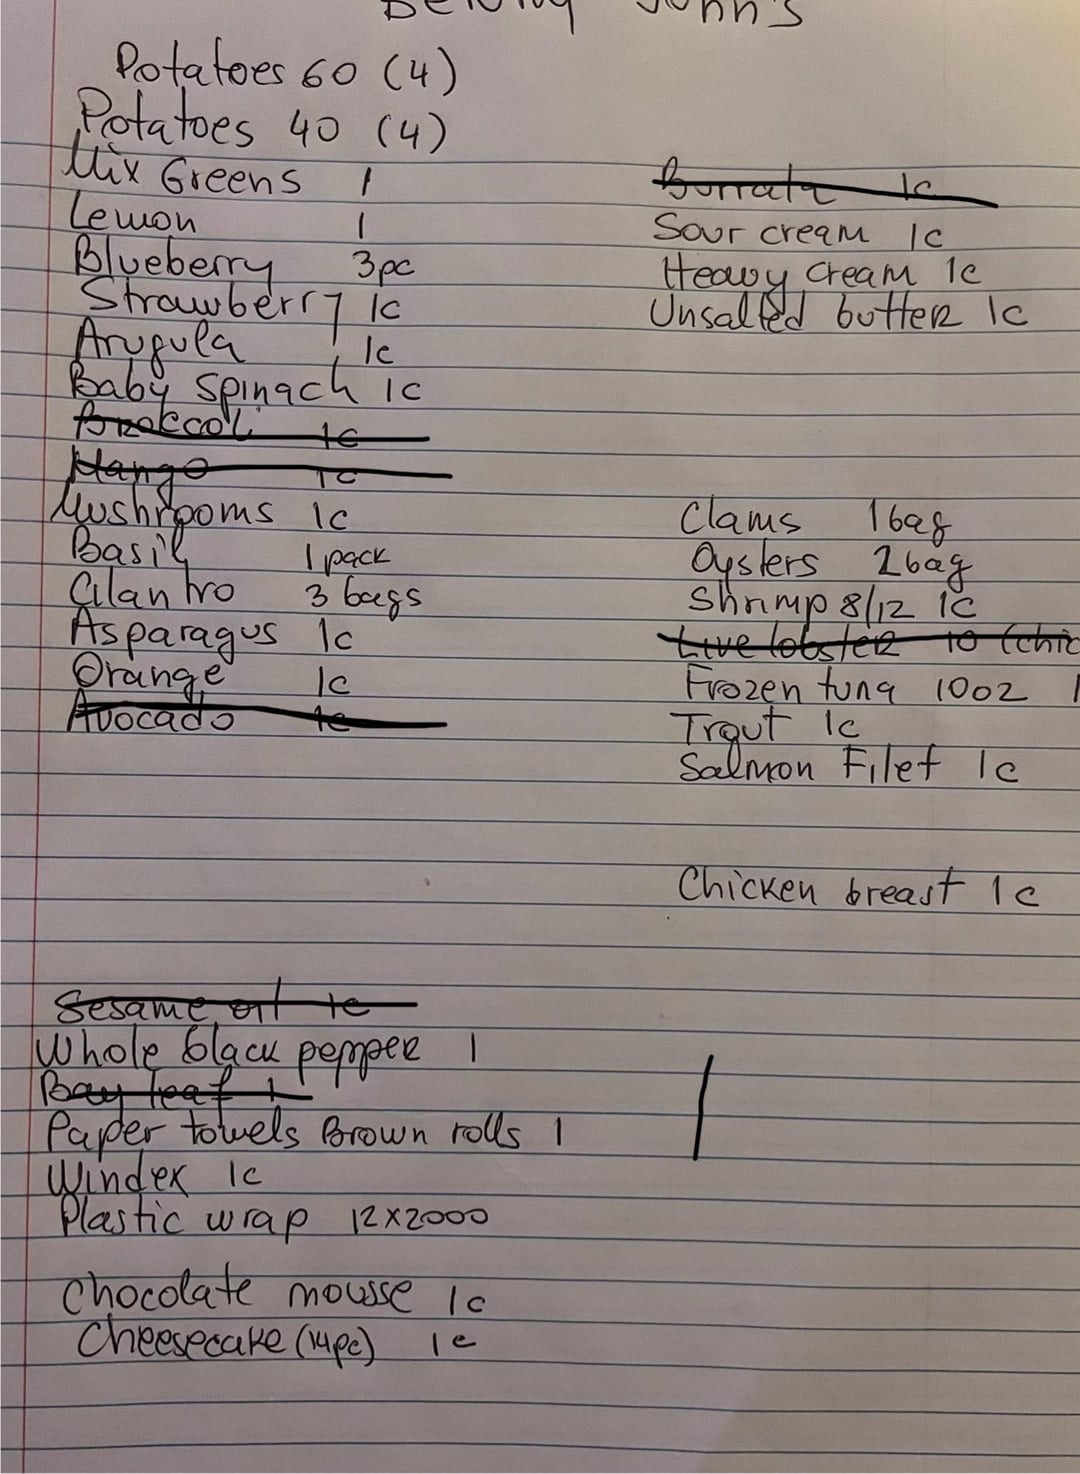 John's
Potatoes 60 (4)
Potatoes 40 (4)
Mix Greens 1
Lemon 1
Blueberry 3pc
Strawberry 1c
Arugula 1c
Baby spinach 1c
Brokcoli 1c
Mango 1c
Mushrooms 1c
Basil 1 pack
Cilantro 3 bags
Asparagus 1c
Orange 1c
Avocado 1c
Burrata 1c
Sour cream 1c
Heavy cream 1c
Unsalted butter 1c
Clams 1bag
Oysters 2bag
Shrimp 8/12 1c
Live lobster 10 (chic
Frozen tuna 10oz 1
Trout 1c
Salmon Filet 1c
Chicken breast 1c
Sesame oil 1c
Whole black pepper 1
Bay leaf 1
Paper towels Brown rolls 1
Windex 1c
Plastic wrap 12x2000
Chocolate mousse 1c
Cheesecake (14pc) 1c